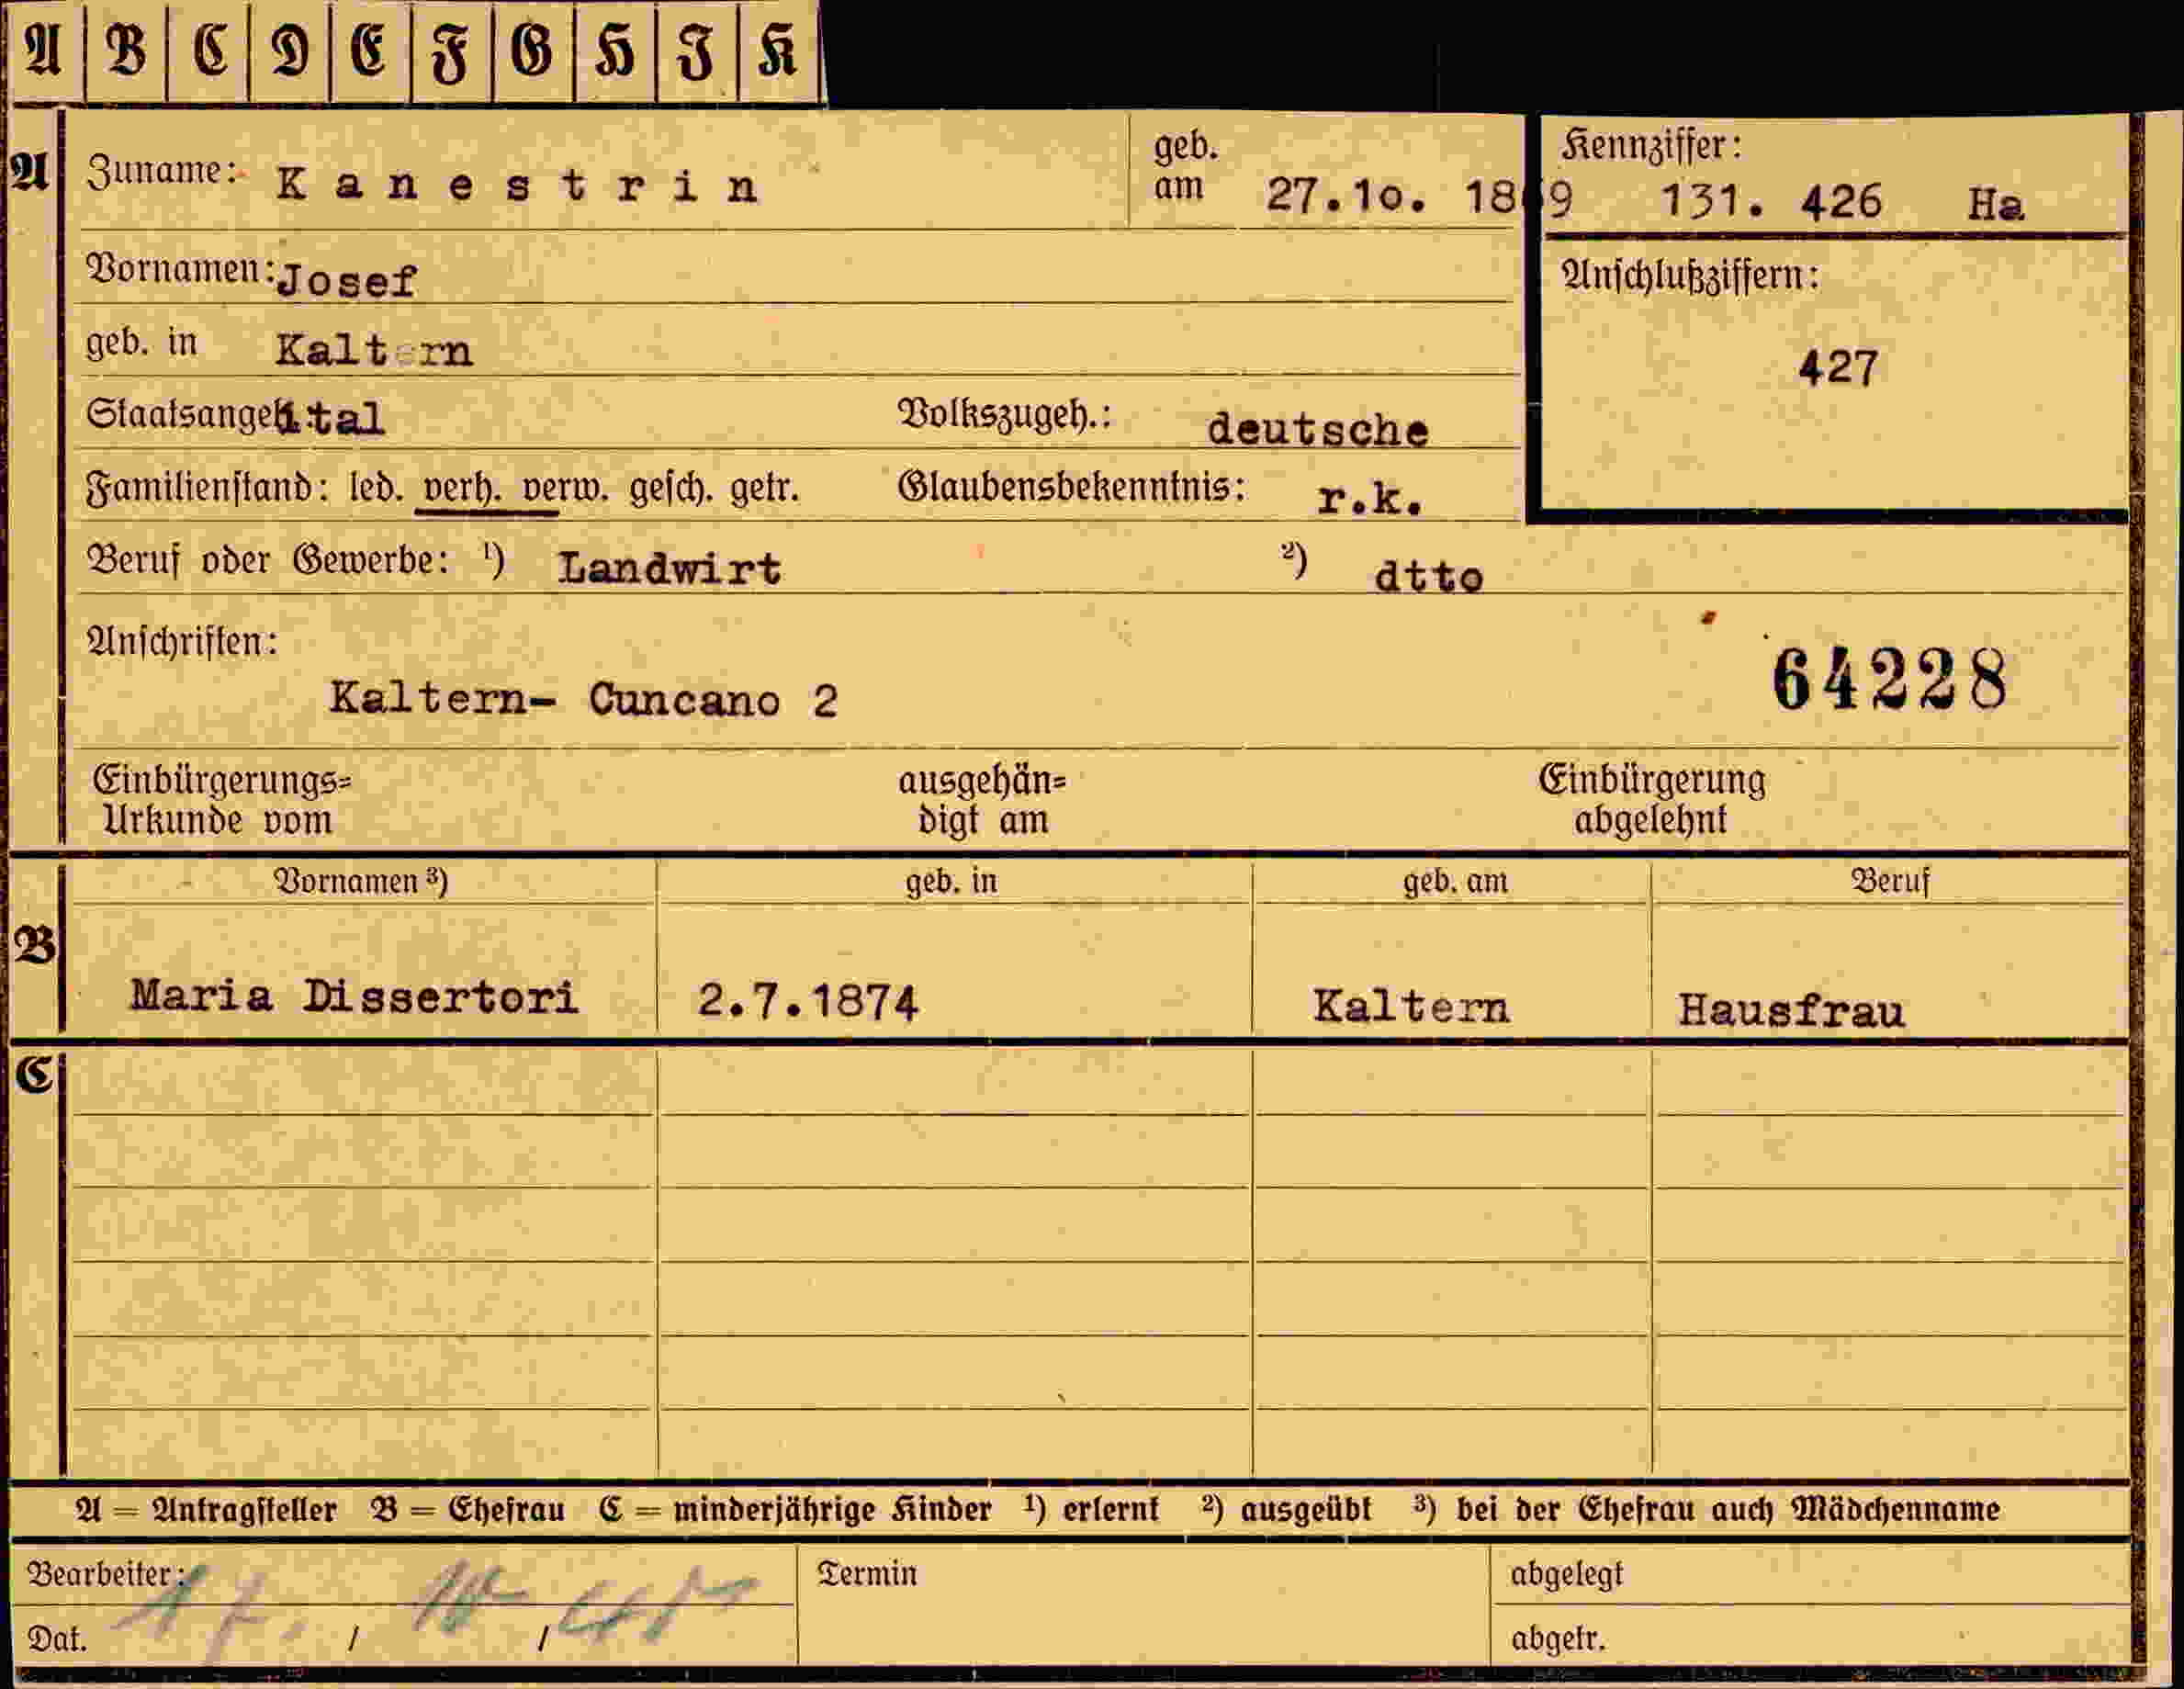 A B C D E F G H I K
A
Zuname: Kanestrin geb. am 27.10. 18 9
Kennziffer: 131. 426 Ha
Vornamen: Josef
Anschlußziffern:
geb. in Kaltern
427
Staatsangeh.: ital Volkszugeh.: deutsche
Familienstand: led. verh. verw. gesch. getr. Glaubensbekenntnis: r.k.
Beruf oder Gewerbe: ¹) Landwirt ²) dtto
Anschriften:
64228
Kaltern- Cuncano 2
Einbürgerungs= ausgehän= Einbürgerung
Urkunde vom digt am abgelehnt
Vornamen ³) geb. in geb. am Beruf
B
Maria Dissertori 2.7.1874 Kaltern Hausfrau
C
A = Antragsteller B = Ehefrau C = minderjährige Kinder ¹) erlernt ²) ausgeübt ³) bei der Ehefrau auch Mädchenname
Bearbeiter: Termin abgelegt
Dat. / / abgetr.